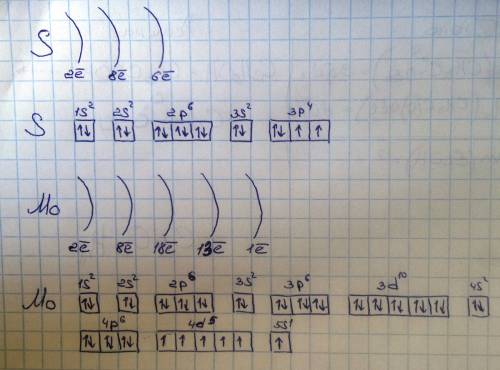 S
2ē 8ē 6ē
1s² 2s² 2p⁶ 3s² 3p⁴
S ↑↓ ↑↓ ↑↓ ↑↓ ↑↓ ↑↓ ↑↓ ↑ ↑
Mo
2ē 8ē 18ē 13ē 1ē
1s² 2s² 2p⁶ 3s² 3p⁶ 3d¹⁰ 4s²
Mo ↑↓ ↑↓ ↑↓ ↑↓ ↑↓ ↑↓ ↑↓ ↑↓ ↑↓ ↑↓ ↑↓ ↑↓ ↑↓ ↑↓ ↑↓
4p⁶ 4d⁵ 5s¹
↑↓ ↑↓ ↑↓ ↑ ↑ ↑ ↑ ↑ ↑